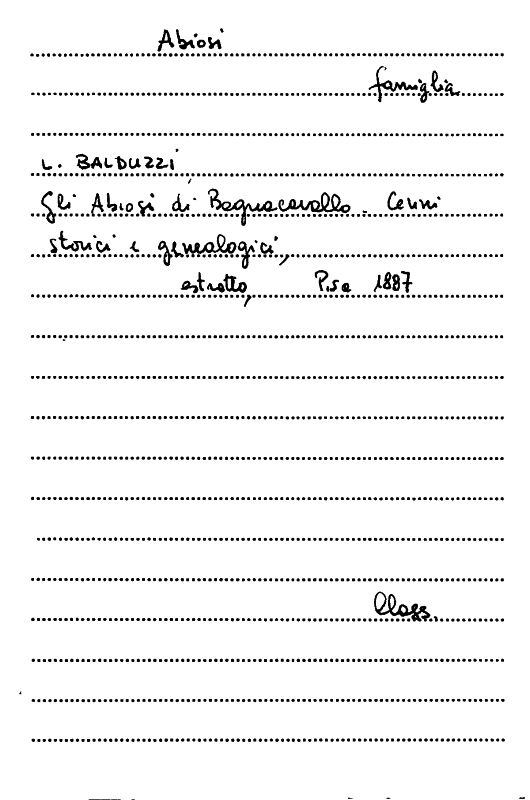 Abiosi
famiglia
L. BALDUZZI
Gli Abiosi di Bagnacavallo. Cenni
storici e genealogici,
estratto, Pisa 1887
Class.